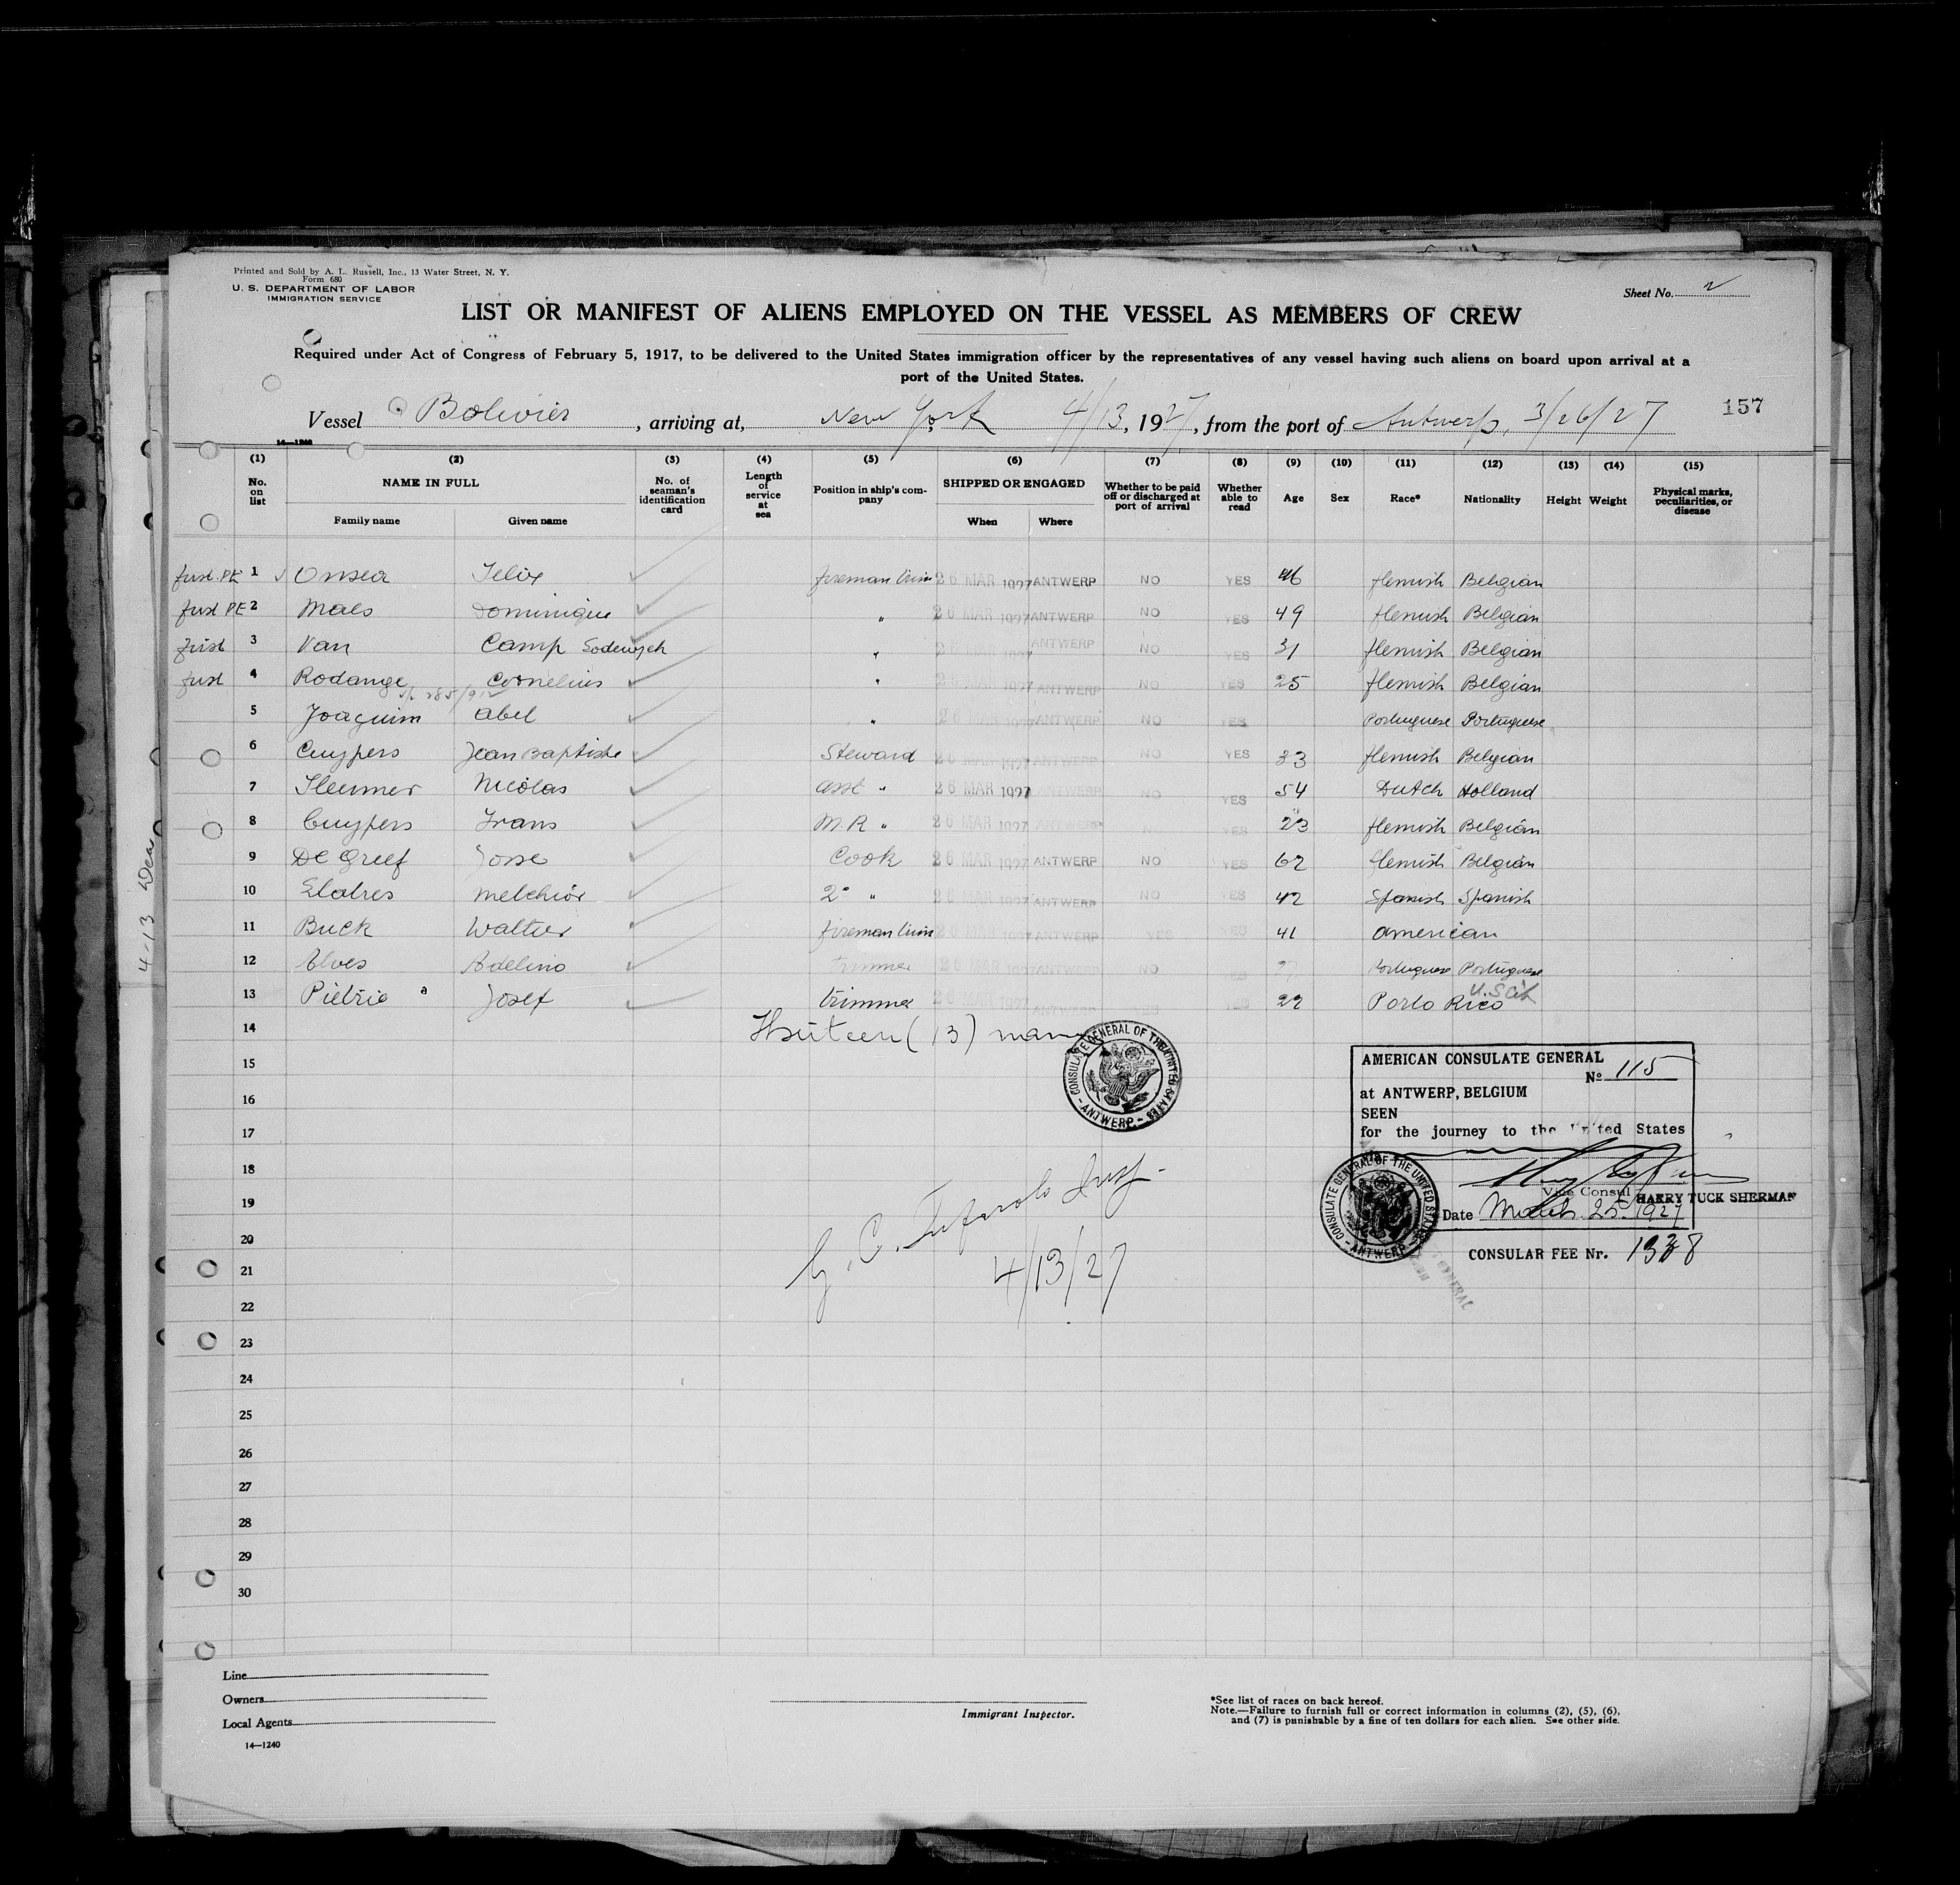 Printed and Sold by A. L. Russell, Inc., 13 Water Street, N. Y.
Form 680
U. S. DEPARTMENT OF LABOR
IMMIGRATION SERVICE
Sheet No. 2
LIST OR MANIFEST OF ALIENS EMPLOYED ON THE VESSEL AS MEMBERS OF CREW
Required under Act of Congress of February 5, 1917, to be delivered to the United States immigration officer by the representatives of any vessel having such aliens on board upon arrival at a
port of the United States.
Vessel Bolivier, arriving at, New York 4/13, 1927, from the port of Antwerp, 3/26/27
157
14—1240
(1) (2) (3) (4) (5) (6) (7) (8) (9) (10) (11) (12) (13) (14) (15)
No. on list NAME IN FULL Family name Given name No. of seaman's identification card Length of service at sea Position in ship's company SHIPPED OR ENGAGED When Where Whether to be paid off or discharged at port of arrival Whether able to read Age Sex Race* Nationality Height Weight Physical marks, peculiarities, or disease
first PE 1 Onsea Felix fireman trim 26 MAR 1927 ANTWERP NO YES 46 flemish Belgian
first PE 2 Maes Dominique " 26 MAR 1927 ANTWERP NO YES 49 flemish Belgian
first 3 Van Camp Lodewyck " 26 MAR 1927 ANTWERP NO YES 31 flemish Belgian
first 4 Rodange Cornelius " 26 MAR 1927 ANTWERP NO YES 25 flemish Belgian
5 Joaquim Abel " 26 MAR 1927 ANTWERP NO YES Portuguese Portuguese
6 Cuypers Jean Baptiste Steward 26 MAR 1927 ANTWERP NO YES 33 flemish Belgian
7 Nicolas asst " 26 MAR 1927 ANTWERP NO YES 54 Dutch Holland
8 Cuypers Frans M.R " 26 MAR 1927 ANTWERP YES 23 flemish Belgian
9 De Greef Josse Cook 26 MAR 1927 ANTWERP NO YES 62 flemish Belgian
10 Melchior 2° " 26 MAR 1927 ANTWERP NO YES 42 Spanish Spanish
11 Buck Walter fireman trim 26 MAR 1927 ANTWERP YES YES 41 american
12 Alves Adelino trimmer 26 MAR 1927 ANTWERP NO YES Portuguese Portuguese
U.S Cit
13 Pietrie a Josef trimmer 26 MAR 1927 ANTWERP YES YES 22 Porto Rico
14 Thirteen (13) names
15
16
17
18
19
20
21
22
23
24
25
26
27
28
29
30
CONSULATE GENERAL OF THE UNITED STATES
ANTWERP
AMERICAN CONSULATE GENERAL
No 115
at ANTWERP, BELGIUM
SEEN
for the journey to the United States
Vice Consul HARRY TUCK SHERMAN
Date March 25. 1927
CONSULAR FEE Nr. 1938
CONSULATE GENERAL OF THE UNITED STATES
ANTWERP
4/13/27
4-13
Line
Owners
Local Agents
14—1240
Immigrant Inspector.
*See list of races on back hereof.
Note.—Failure to furnish full or correct information in columns (2), (5), (6),
and (7) is punishable by a fine of ten dollars for each alien. See other side.